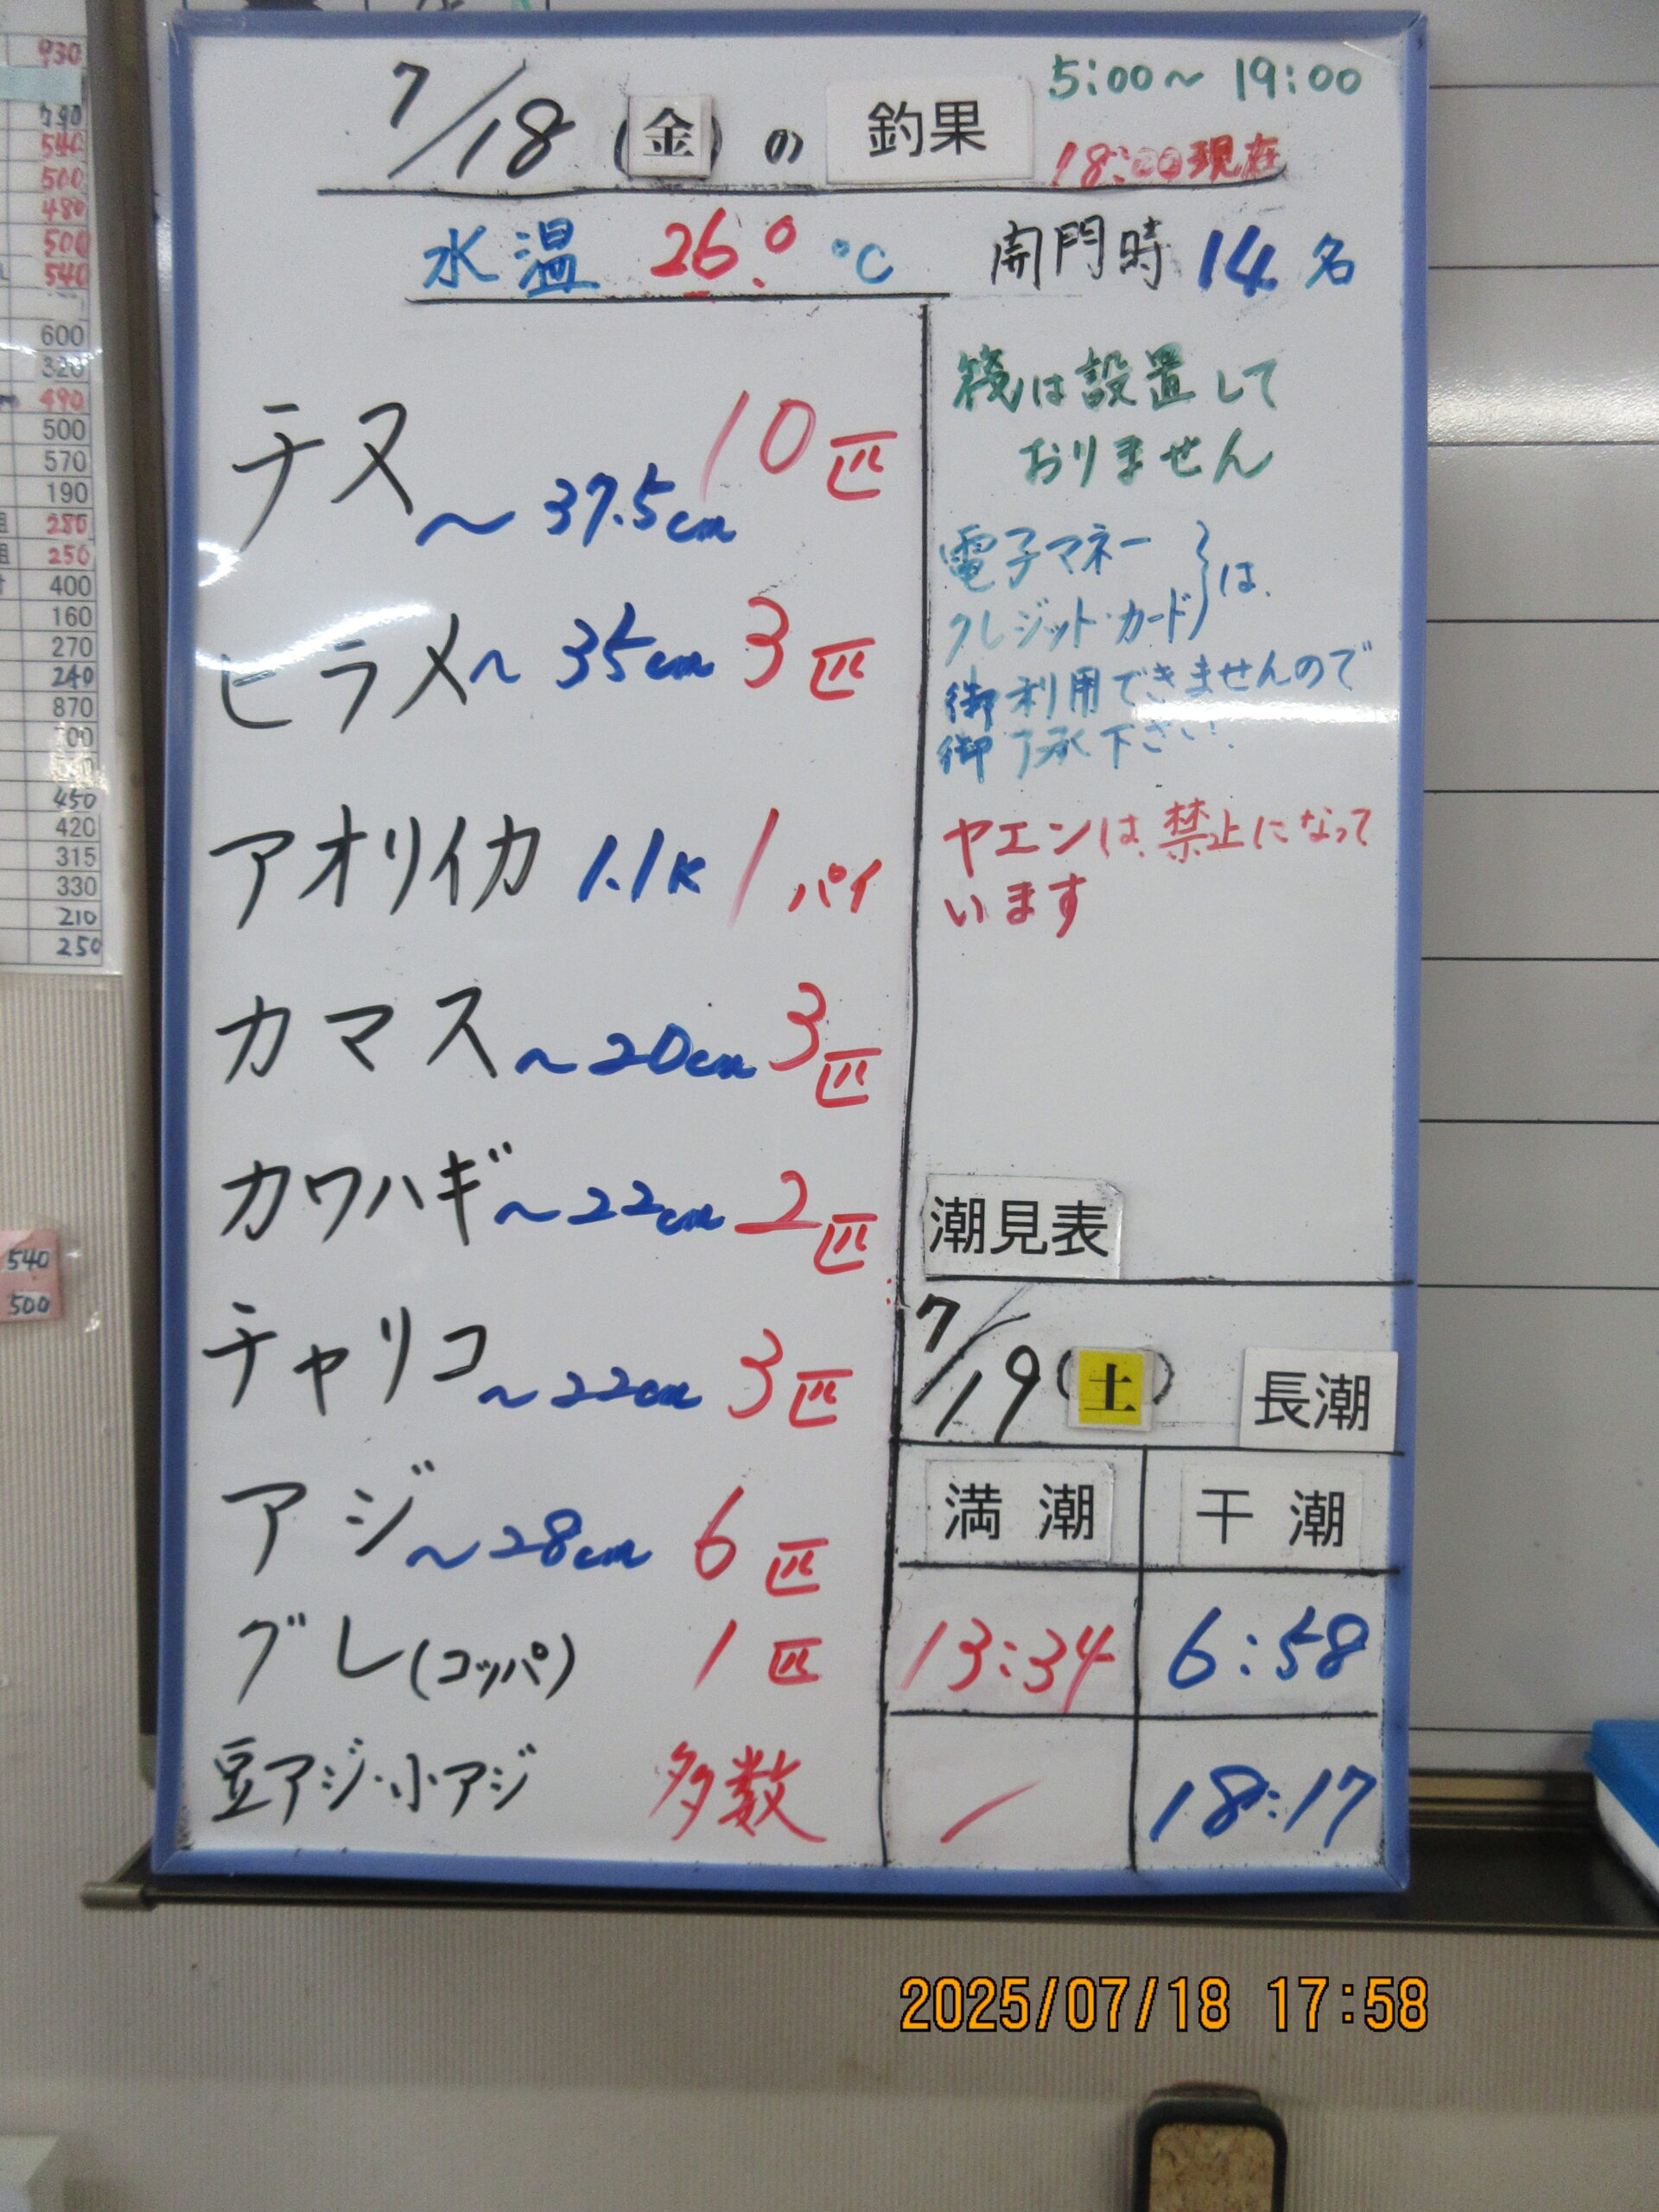 7/18(金)の釣果
5:00〜19:00
18:00現在
水温 26.0 ℃
開門時 14名
チヌ 〜37.5cm 10匹
ヒラメ〜35cm 3匹
アオリイカ 1.1K 1パイ
カマス〜20cm 3匹
カワハギ〜22cm 2匹
チャリコ〜22cm 3匹
アジ〜28cm 6匹
グレ(コッパ) 1匹
豆アジ・小アジ 多数
筏は設置して
おりません
電子マネー
クレジット・カード}は、
御利用できませんので
御了承下さい!
ヤエンは、禁止になって
います
潮見表
7/19(土) 長潮
満潮 干潮
13:34 6:58
/ 18:17
930
790
540
500
480
500
540
600
320
490
500
570
190
280
250
400
160
270
240
870
450
420
315
330
210
250
540
500
2025/07/18 17:58